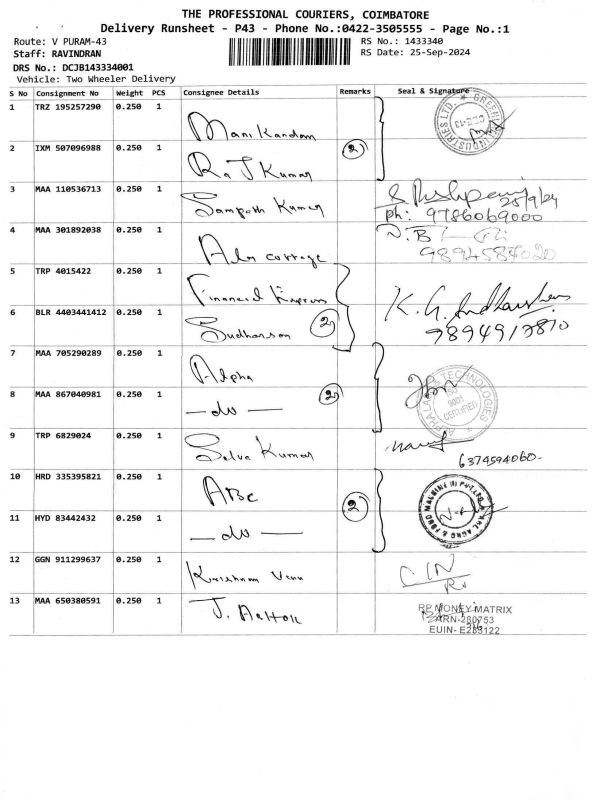 THE PROFESSIONAL COURIERS, COIMBATORE
Delivery Runsheet - P43 - Phone No.:0422-3505555 - Page No.:1
Route: V PURAM-43 RS No.: 1433340
Staff: RAVINDRAN RS Date: 25-Sep-2024
DRS No.: DCJB143334001
Vehicle: Two Wheeler Delivery
S No Consignment No Weight PCS Consignee Details Remarks Seal & Signature
1 TRZ 195257290 0.250 1 Mani Kandan
2 IXM 507096988 0.250 1 Raj Kumar 2
INDUSTRIES LTD.
3 MAA 110536713 0.250 1 Sampath Kumar 25/9/24
Ph: 9786069000
4 MAA 301892038 0.250 1 cottage
9894584020
5 TRP 4015422 0.250 1 Financial Express
6 BLR 4403441412 0.250 1 Sudharson 2
7 MAA 705290289 0.250 1 Alpha
8 MAA 867040981 0.250 1 — do — 2
TECHNOLOGIES
9001
CERTIFIED
9 TRP 6829024 0.250 1 Selva Kumar
6374594060-
10 HRD 335395821 0.250 1 ABC
11 HYD 83442432 0.250 1 — do — 2
12 GGN 911299637 0.250 1 Krishnam
13 MAA 650380591 0.250 1 J.
MONEY MATRIX
ARN-280753